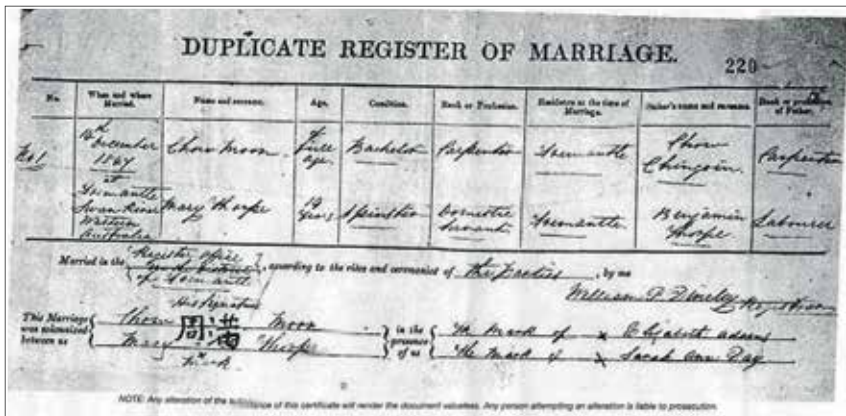 DUPLICATE REGISTER OF MARRIAGE.
220
No. When and where Married. Name and surname. Age. Condition. Rank or Profession. Residence at the time of Marriage. Father's name and surname. Rank or profession of Father.
December 1867 at Fremantle Swan River Western Australia
Chow Moon Full age. Bachelor Carpenter Fremantle Chow Carpenter
Mary Thorpe 19 Years Spinster Domestic Servant Fremantle Benjamin Thorpe Labourer
Married in the Register office of Fremantle, according to the rites and ceremonies of the Parties, by me
William
His Signature
This Marriage was solemnized between us
Chow 周 Moon
Mary Thorpe
in the presence of us
The mark of x Elizabeth Adams
The mark of x Sarah Ann Day
NOTE: Any alteration of the substance of this certificate will render the document valueless. Any person attempting an alteration is liable to prosecution.